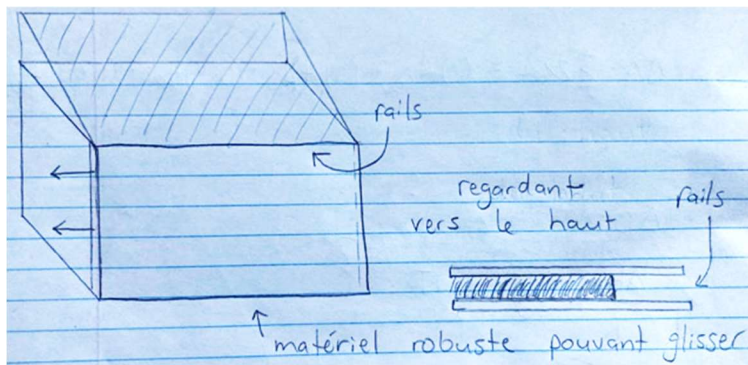 rails
regardant
vers le haut
rails
matériel robuste pouvant glisser